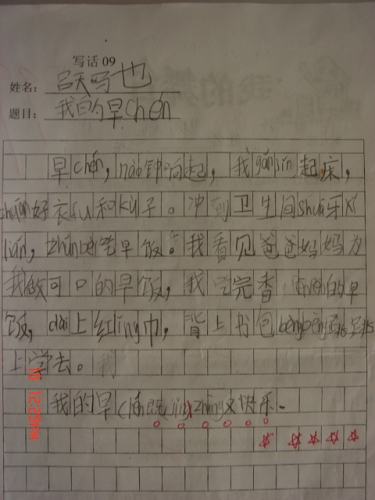 写话09
姓名：吕天写也
题目：我的早chén
早chén，nào钟响起，我gǎnjǐn起床，
chuān好衣fu和kù子。冲到卫生间shuā牙xǐ
liǎn，zhǔnbèi吃早饭。我看见爸爸妈妈为
我做可口的早饭，我吃完香的早
饭，dài上红lǐng巾，背上书包bèng
上学去。
我的早chén既jǐnzhāng又快乐。